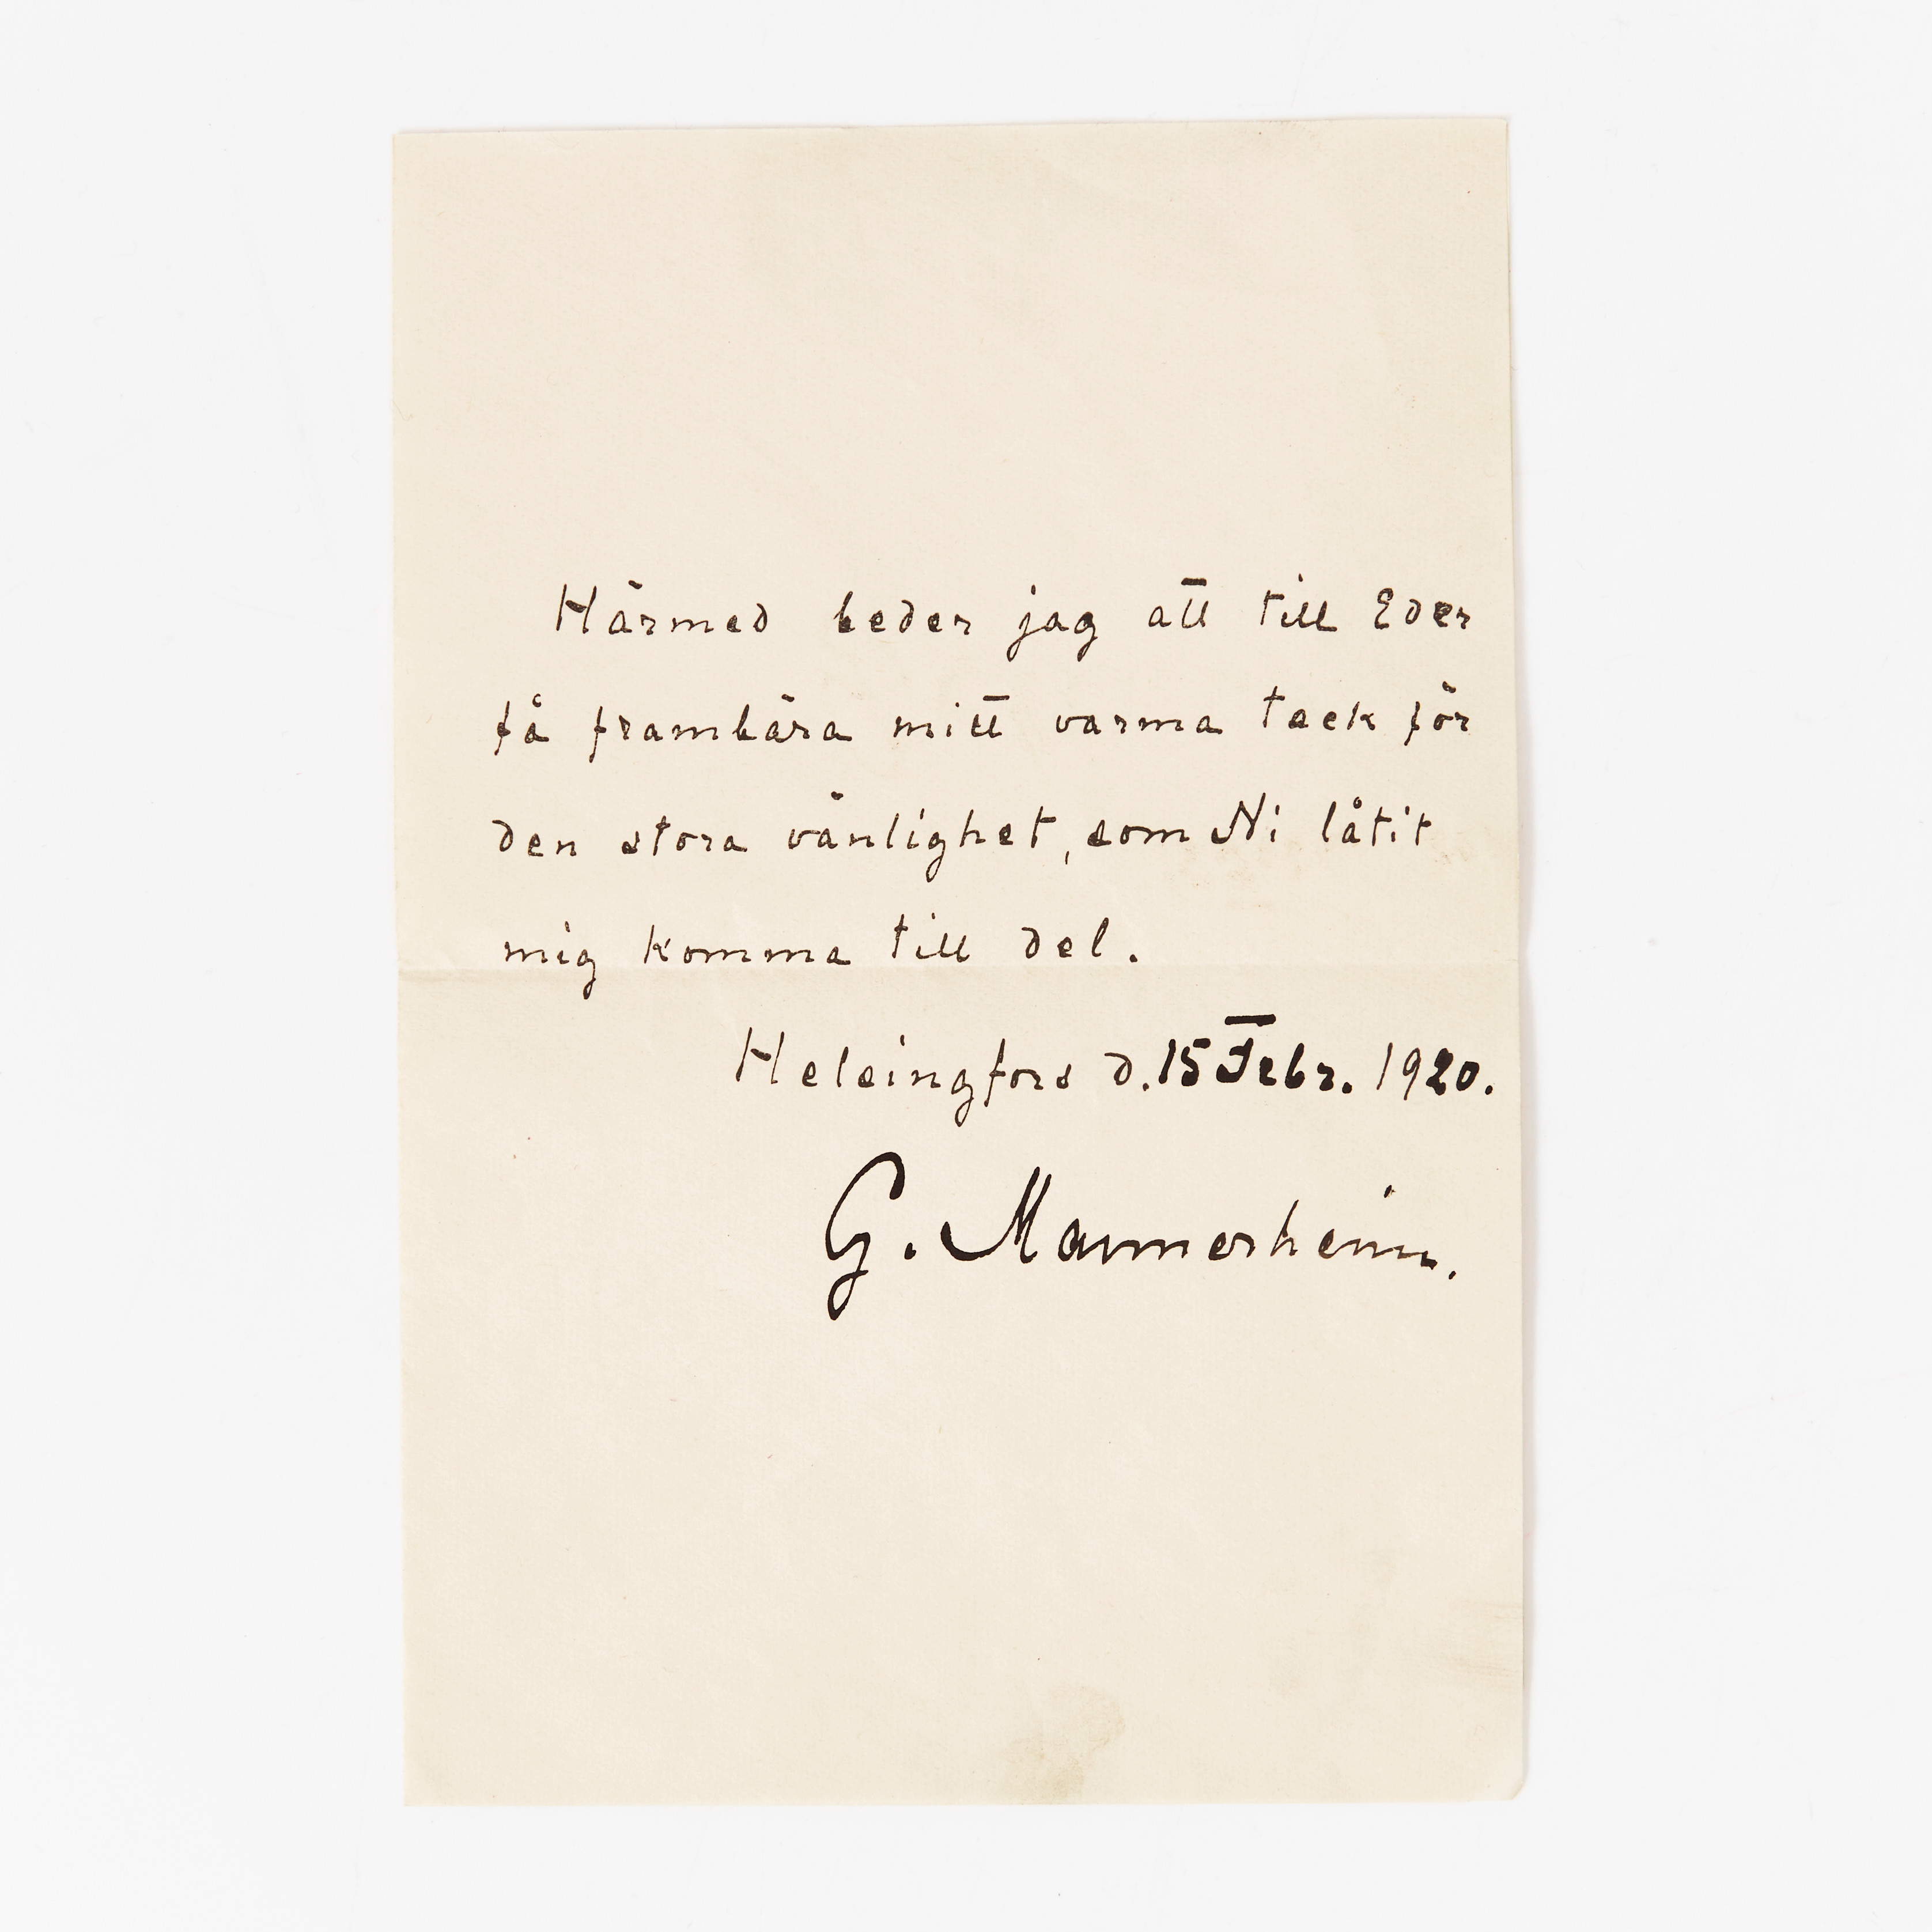 Härmed beder jag att till Eder
få frambära mitt varma tack för
den stora vänlighet, som Ni låtit
mig komma till del.
Helsingfors d. 15 Febr. 1920.
G. Mannerheim.